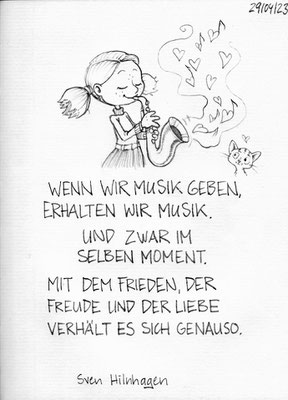 29/04/23
WENN WIR MUSIK GEBEN,
ERHALTEN WIR MUSIK.
UND ZWAR IM
SELBEN MOMENT.
MIT DEM FRIEDEN, DER
FREUDE UND DER LIEBE
VERHÄLT ES SICH GENAUSO.
Sven Hilnhagen